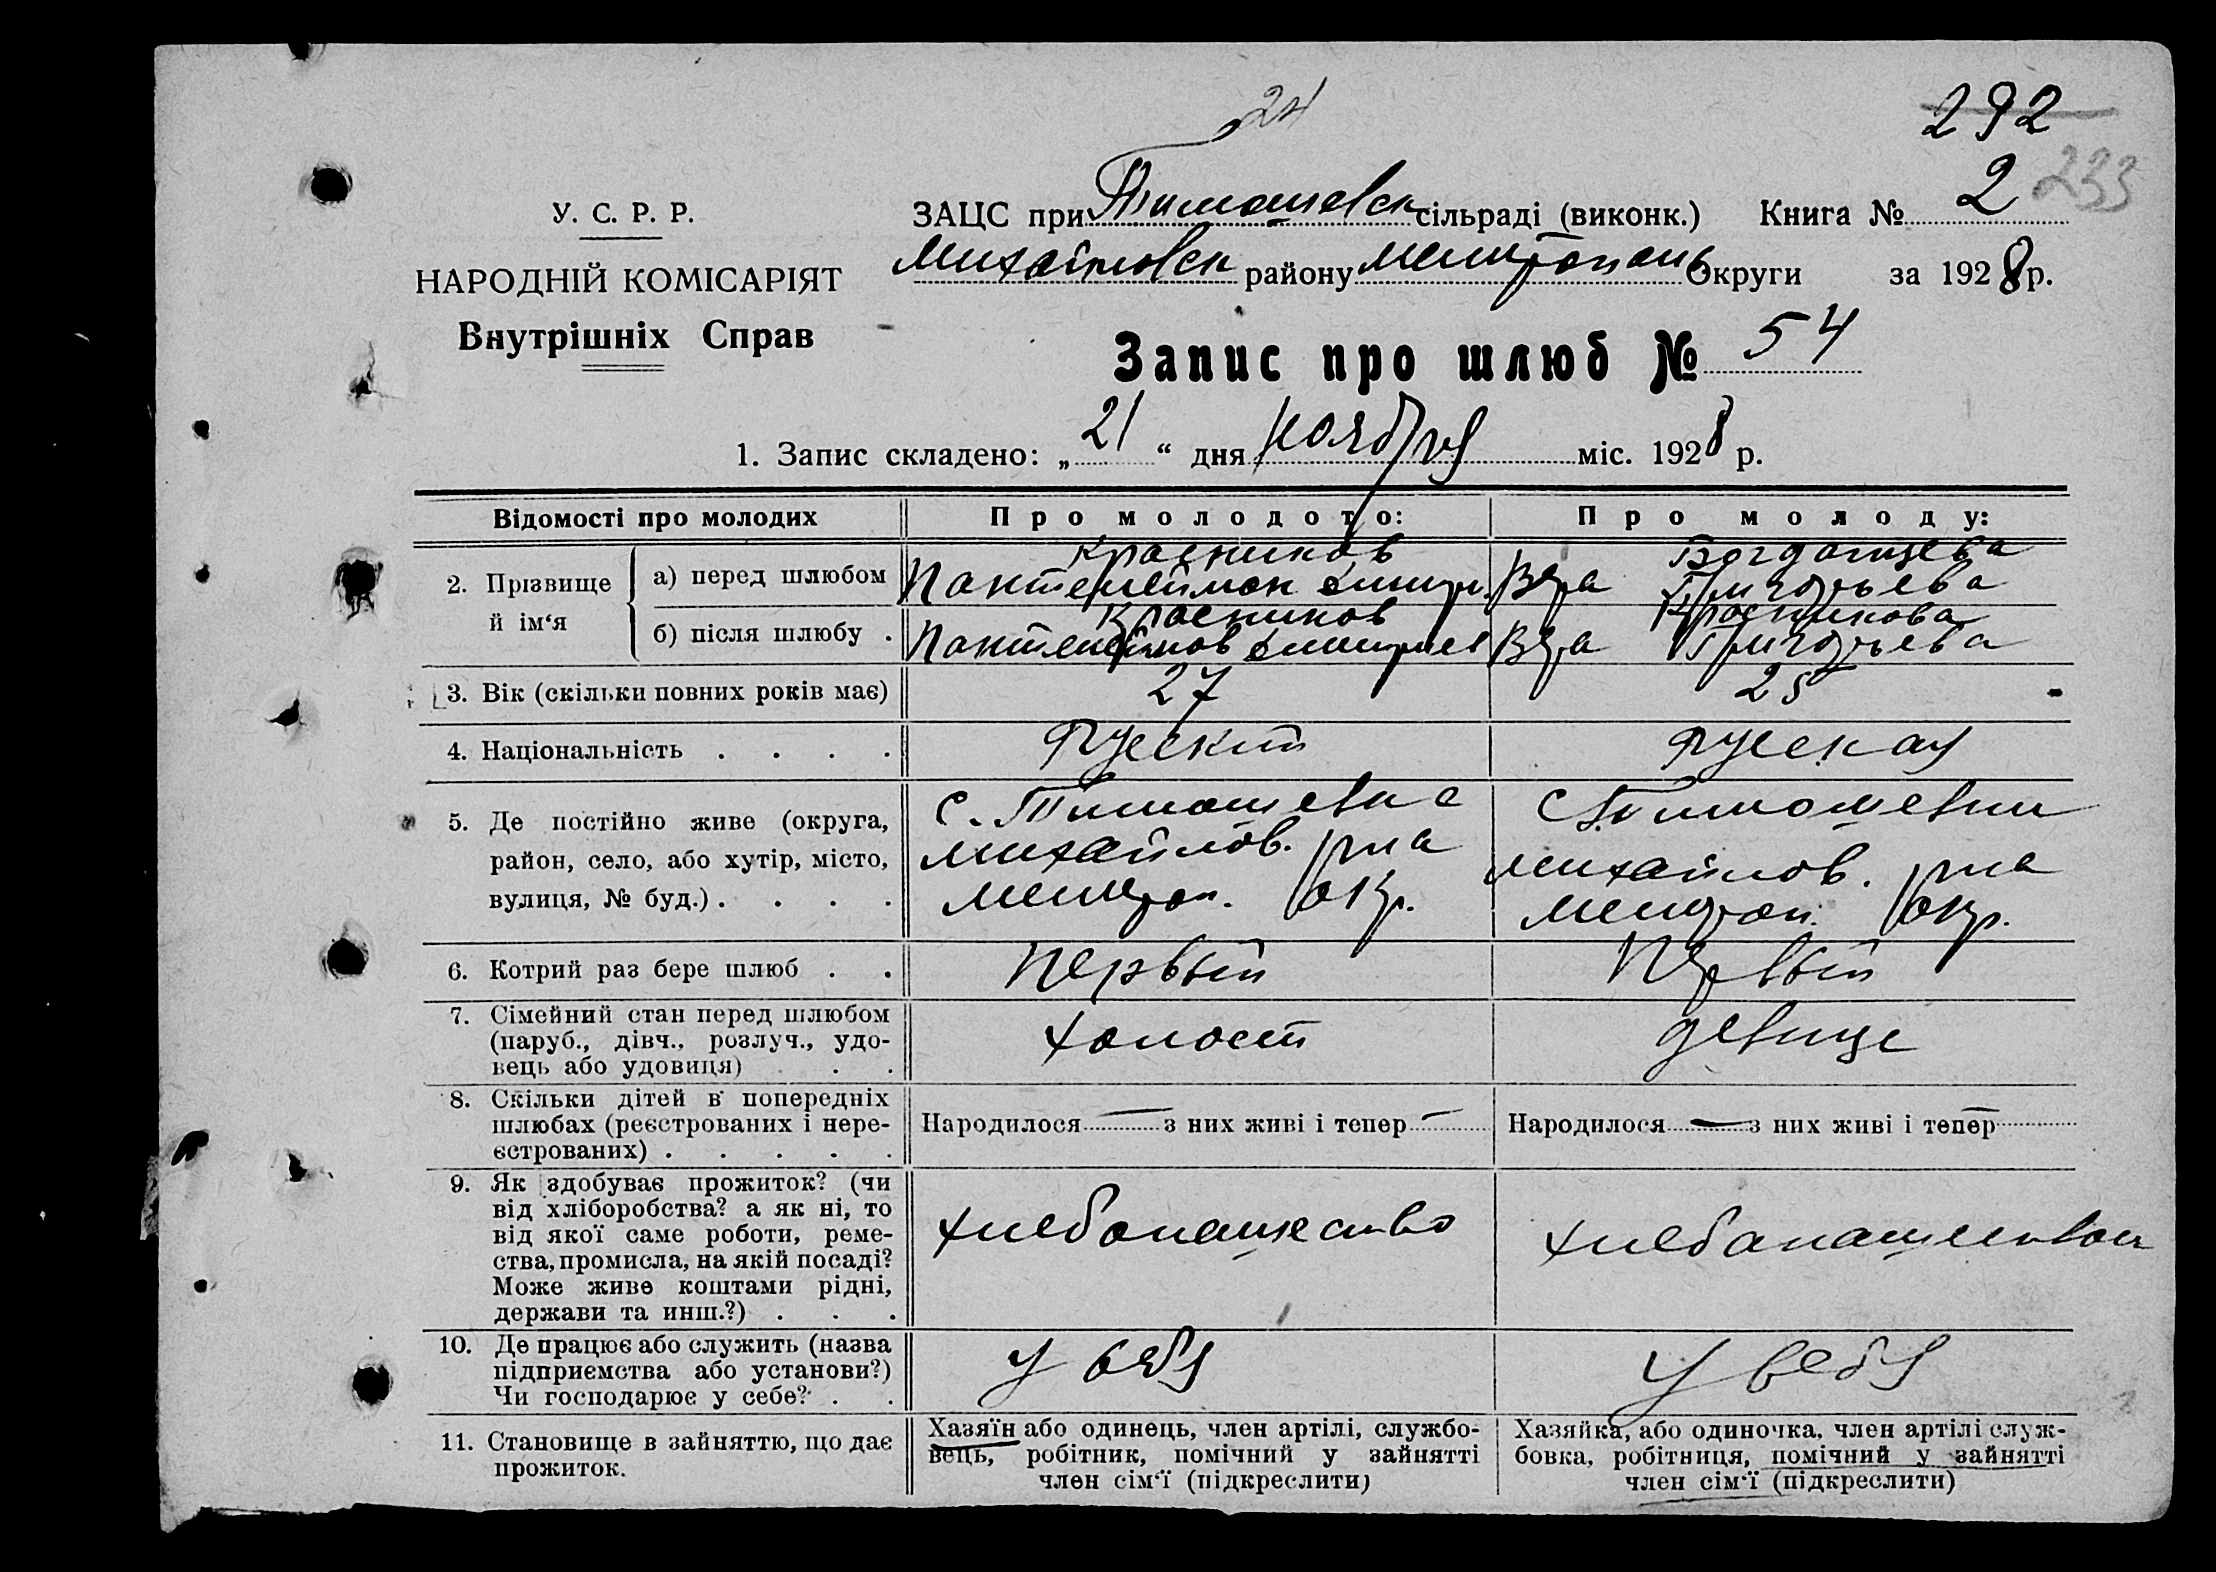 24
292
233
У. С. Р. Р.
НАРОДНІЙ КОМІСАРІЯТ
Внутрішніх Справ
ЗАЦС при Тимошевск сільраді (виконк.) Книга № 2
Михайловск району Мелитопань Округи за 1928 р.
Запис про шлюб № 54
1. Запис складено: „ 21 “ дня ноября міс. 1928 р.
Відомості про молодих
Про молодого:
Про молоду:
2. Прізвище й ім‘я
а) перед шлюбом
Красников
Пантелеймон Дмитр.
Богданцева
Вера Григорьева
б) після шлюбу
Красников
Красникова
Вера Григорьева
3. Вік (скільки повних років має)
27
25
4. Національність
Руский
Руская
5. Де постійно живе (округа, 
район, село, або хутір, місто,
вулиця, № буд.)
с. Тимошевка
михайлов. рна
мелитоп. окр.
с. Тимошевки
михайлов. рна
мелитоп. окр.
6. Котрий раз бере шлюб
первый
первый
7. Сімейний стан перед шлюбом
(паруб., дівч., розлуч., удо-
вець або удовиця)
холост
девице
8. Скільки дітей в попередніх
шлюбах (реєстрованих і нере-
єстрованих)
Народилося — з них живі і тепер —
Народилося — з них живі і тепер —
9. Як здобуває прожиток? (чи
від хліборобства? а як ні, то
від якої саме роботи, реме-
ства, промисла, на якій посаді?
Може живе коштами рідні,
держави та инш.?)
хлебопашество
10. Де працює або служить (назва
підприємства або установи?)
Чи господарює у себе?
у себя
у себя
11. Становище в зайняттю, що дає
прожиток.
Хазяїн або одинець, член артілі, службо-
вець, робітник, помічний у зайнятті
член сім‘ї (підкреслити)
Хазяйка, або одиночка, член артілі служ-
бовка, робітниця, помічний у зайнятті
член сім‘ї (підкреслити)